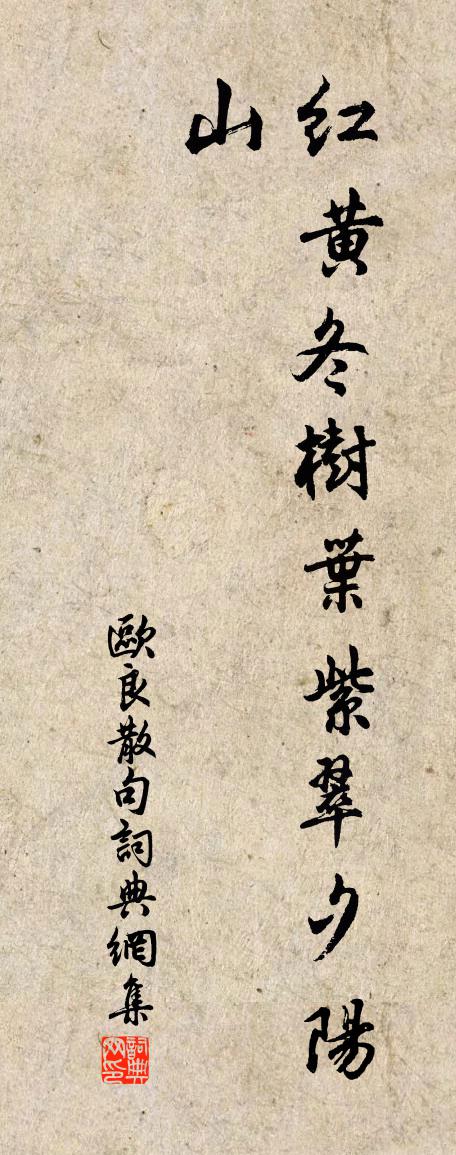 红黄冬樹葉紫翠夕陽
山
歐良散句詞典網集
詞典网印